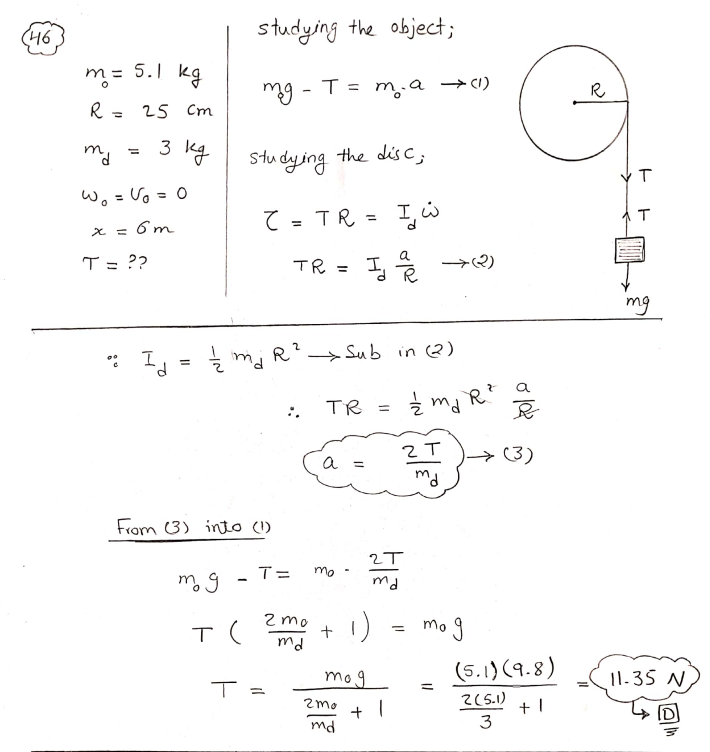 46
m₀ = 5.1 kg
R = 25 cm
m_d = 3 kg
ω₀ = v₀ = 0
x = 6m
T = ??
studying the object;
m₀g - T = m₀.a → (1)
studying the disc;
τ = TR = I_d ω̇
TR = I_d a/R → (2)
R
T
T
mg
∵ I_d = 1/2 m_d R² → Sub in (2)
∴ TR = 1/2 m_d R² a/R
a = 2T/m_d → (3)
From (3) into (1)
m₀g - T = m₀ · 2T/m_d
T ( 2m₀/m_d + 1 ) = m₀g
T = m₀g / (2m₀/m_d + 1) = (5.1)(9.8) / (2(5.1)/3 + 1) = 11.35 N
↳ D